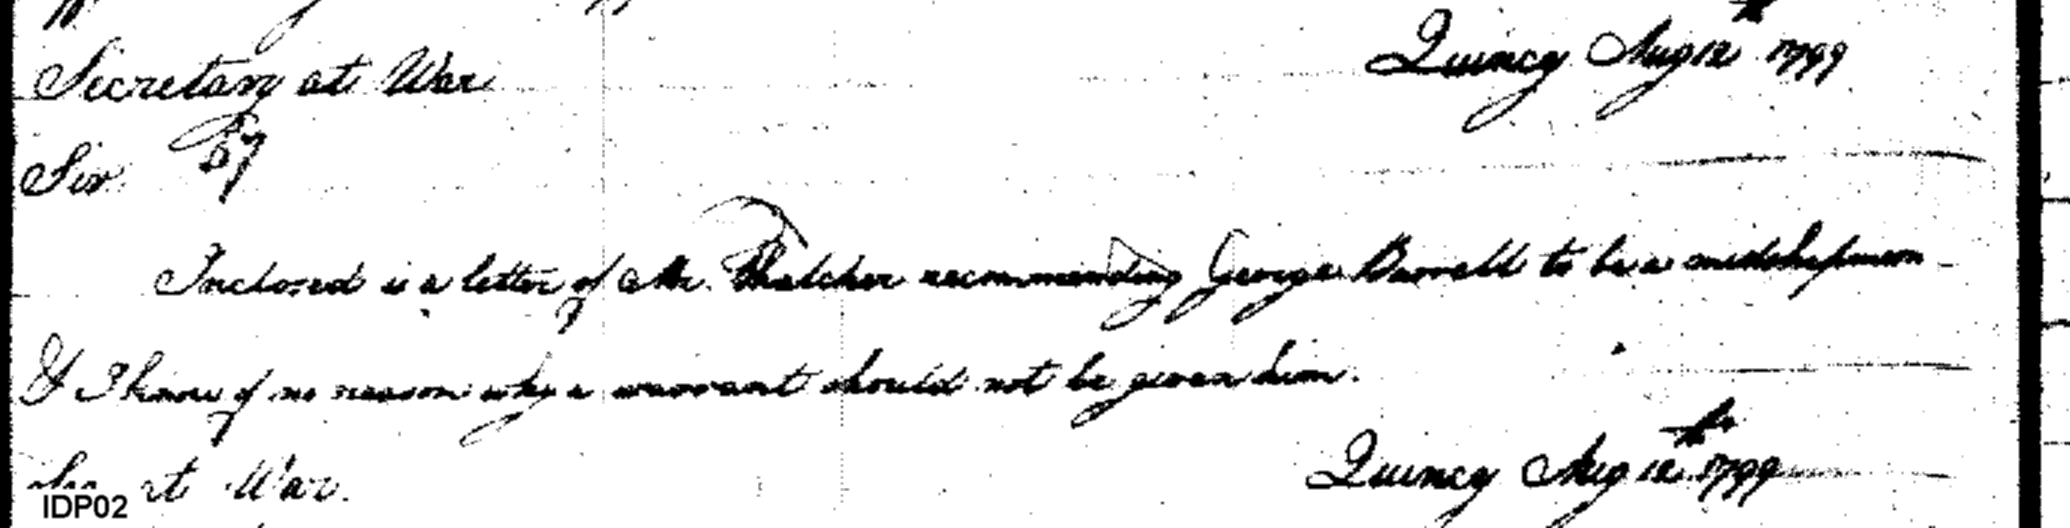 Secretary at War Quincy Aug 12th 1799
Sir
Inclosed is a letter of Mr. Thatcher recommending George Burrell to be a midshipman
& I know of no reason why a warrant should not be given him.
at War. Quincy Aug 12th 1799
IDP02